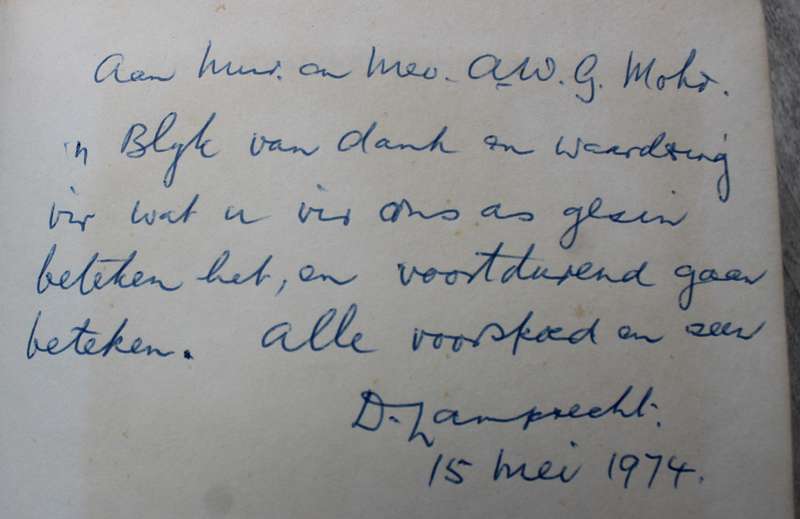 Aan Mnr. en Mev. A.W.G. Mohr.
'n Blyk van dank en waardering
vir wat u vir ons as gesin
beteken het, en voortdurend gaan
beteken. Alle voorspoed en seën
D. Lamprecht.
15 Mei 1974.